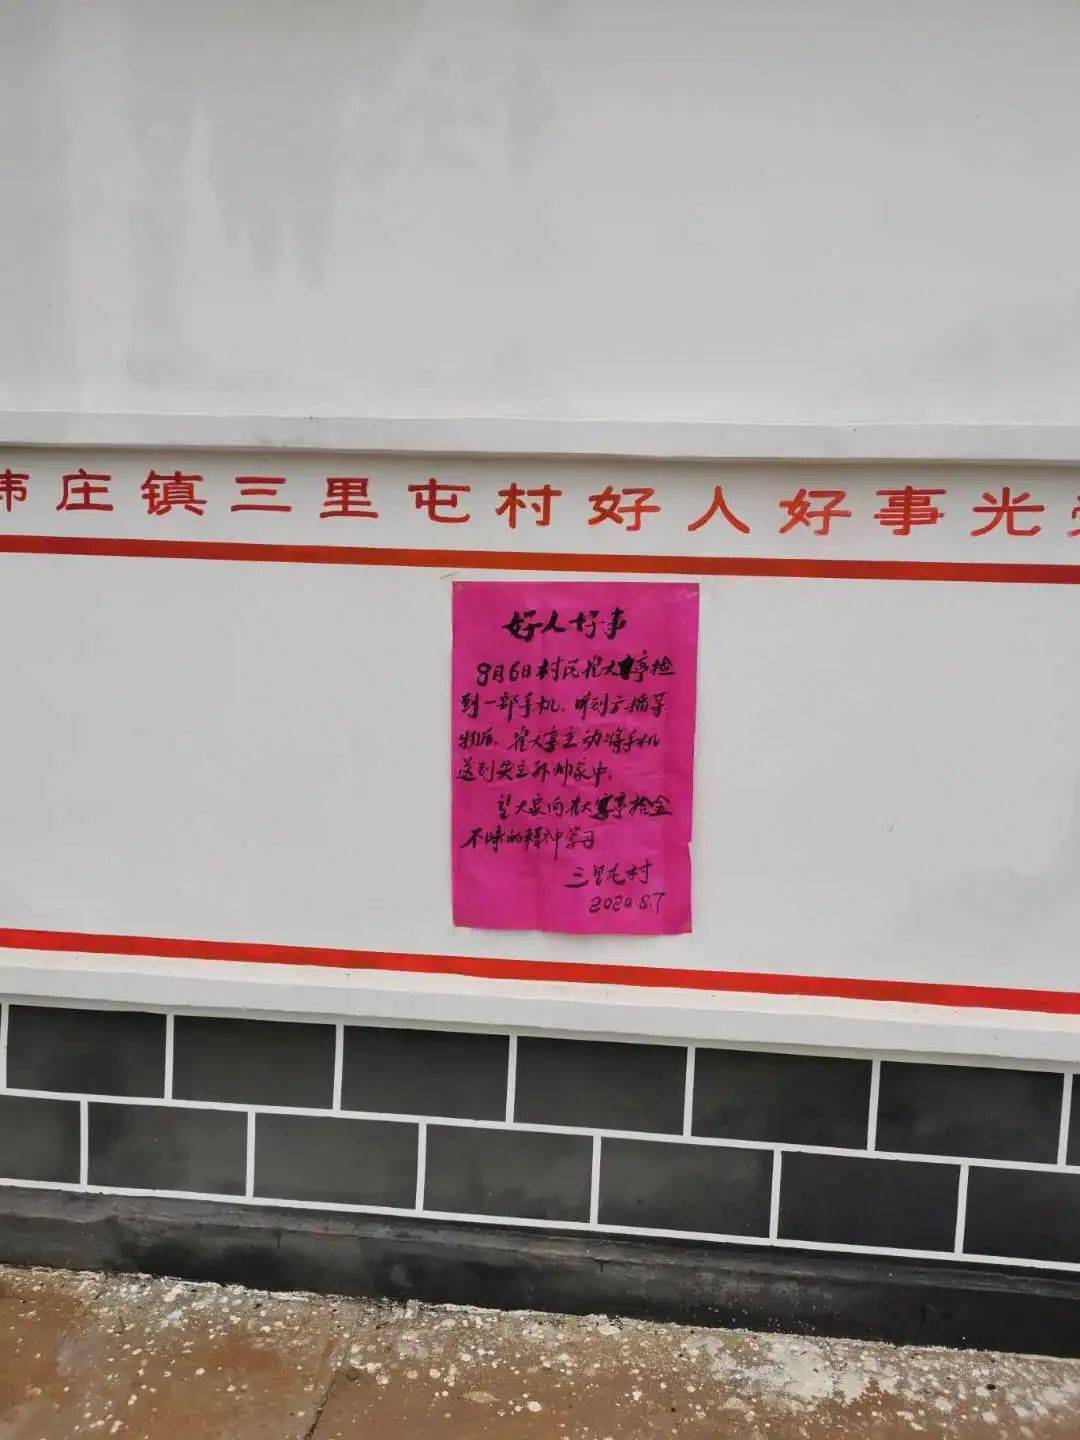 庄镇三里屯村好人好事光
好人好事
8月6日村民崔大亭捡
到一部手机.听到广播寻
物后.崔大亭主动将手机
送到失主孙帅家中.
望大家向崔大亭拾金
不昧的精神学习
三里屯村
2020.8.7